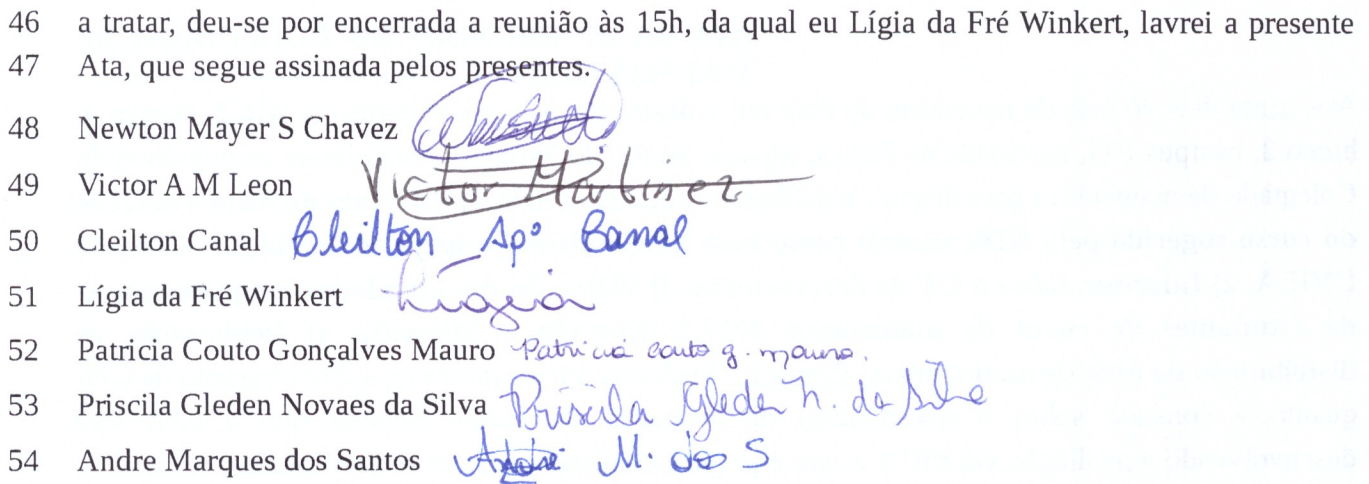 46 a tratar, deu-se por encerrada a reunião às 15h, da qual eu Lígia da Fré Winkert, lavrei a presente
47 Ata, que segue assinada pelos presentes.
48 Newton Mayer S Chavez
49 Victor A M Leon Victor Martinez
50 Cleilton Canal Cleilton Apº Canal
51 Lígia da Fré Winkert Lígia
52 Patricia Couto Gonçalves Mauro Patricia Couto G. Mauro.
53 Priscila Gleden Novaes da Silva Priscila Gleden N. da Silva
54 Andre Marques dos Santos André M. dos S